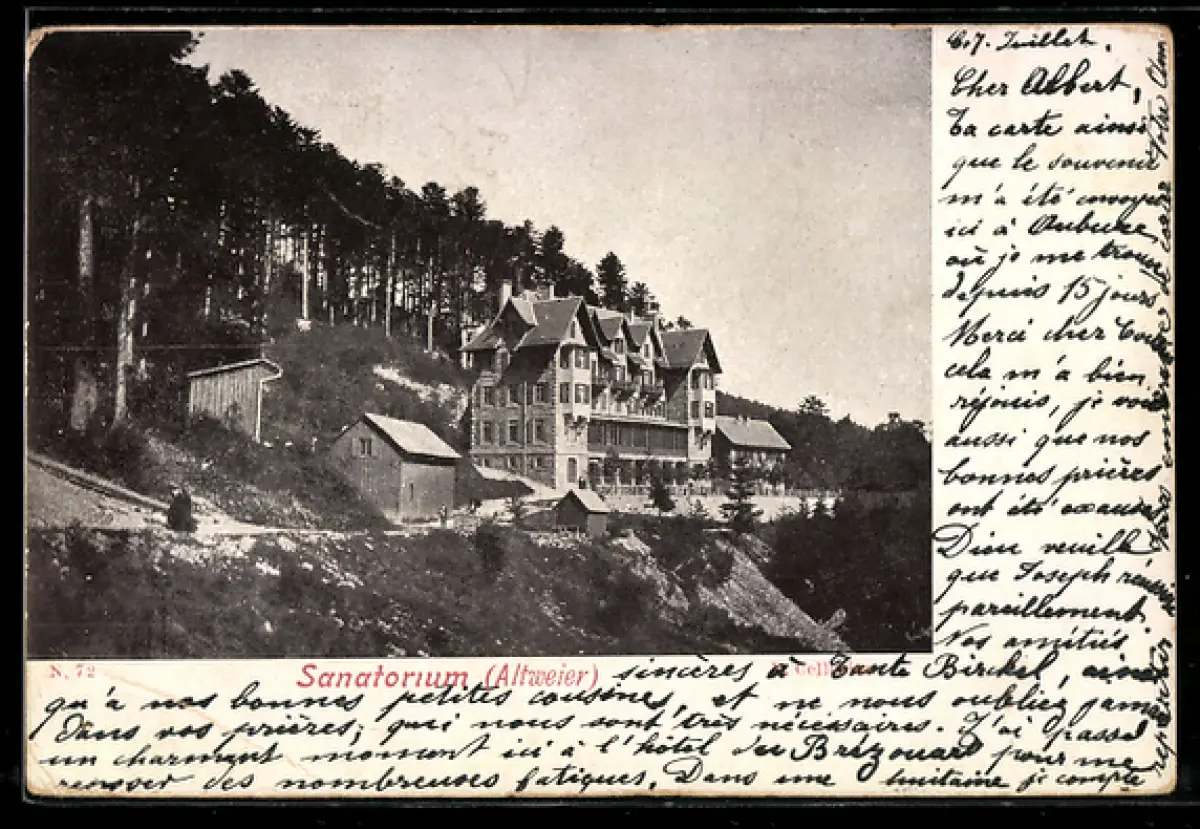 Ce 7. Juillet.
Cher Albert,
Ta carte ainsi
que le souvenir
m'a été envoyé
ici à Aubure,
où je me trouve
depuis 15 jours
Merci cher
cela m'a bien
réjouis, je vois
aussi que nos
bonnes prières
ont été exaucé
Dieu veuille
que Joseph réussisse
pareillement.
Nos amitiés
sincères à Tante Birckel, ainsi
qu'à nos bonnes petites cousines, et ne nous oubliez jamais
dans vos prières; qui nous sont très nécessaires. J'ai passé
un charmant moment ici à l'hôtel du Brézouard pour me
reposer des nombreuses fatigues. Dans une huitaine je compte
repartir
N. 72
Sanatorium (Altweier)